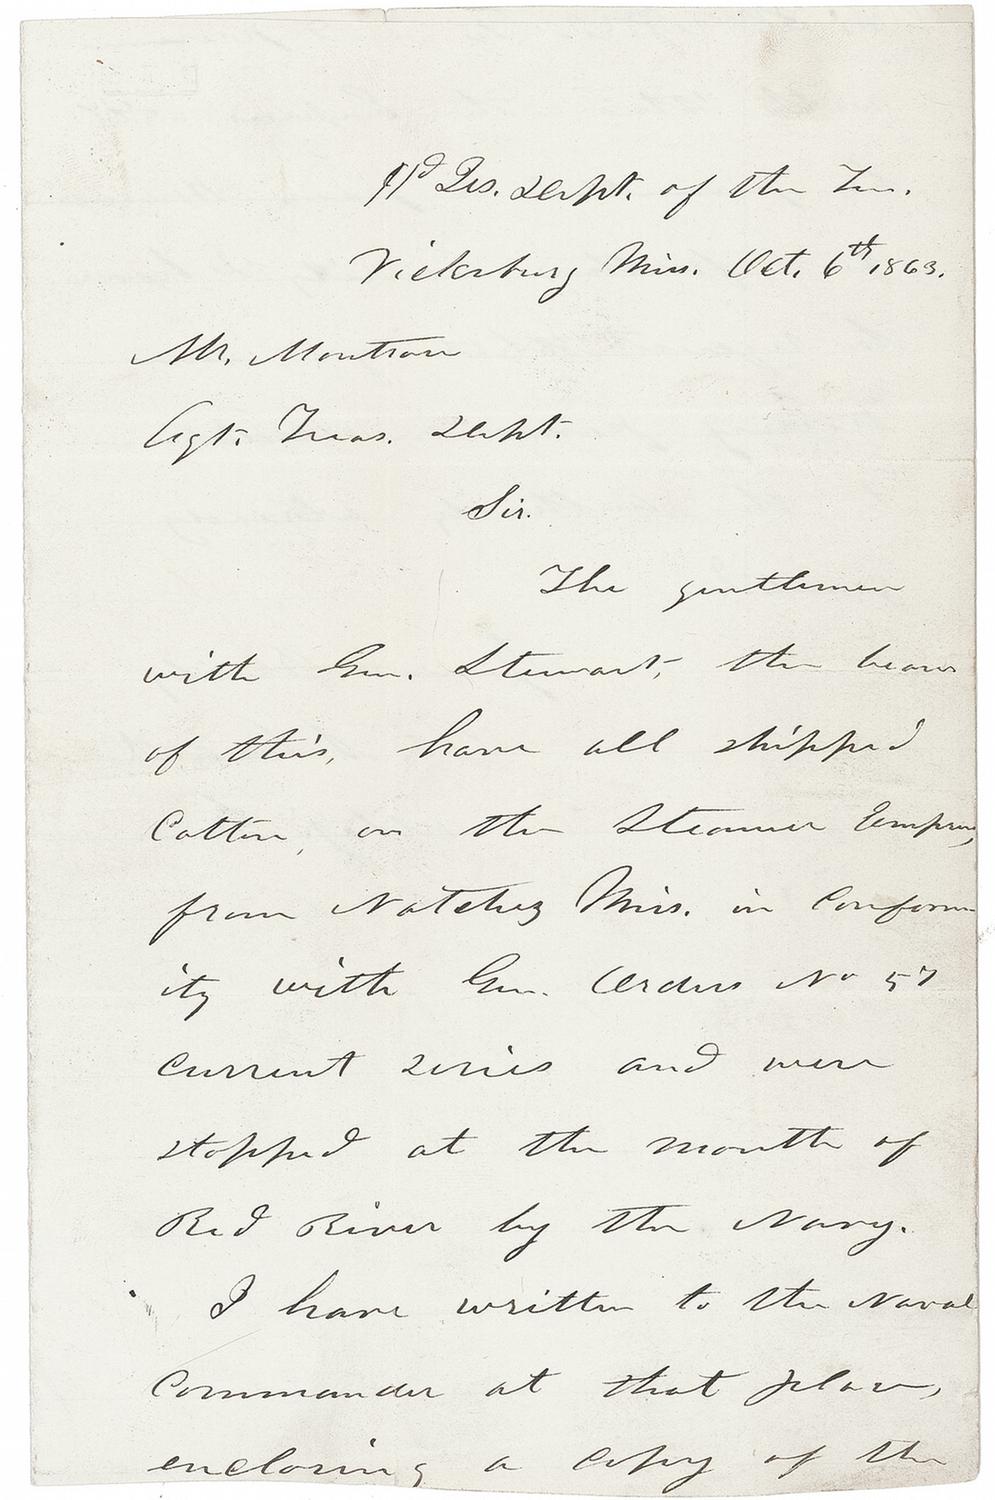 Hd Qrs. Dept. of the Ten.
Vicksburg Miss. Oct. 6th 1863.
Mr. Montrose
Agt. Treas. Dept.
Sir.
The gentlemen
with Gen. Stewart, the bearer
of this, have all shipped
Cotton, on the Steamer Empress,
from Natchez Miss. in Conform
ity with Gen. Orders No 57
current series and were
stopped at the mouth of
Red River by the Navy.
I have written to the Naval
Commander at that place,
enclosing a copy of the